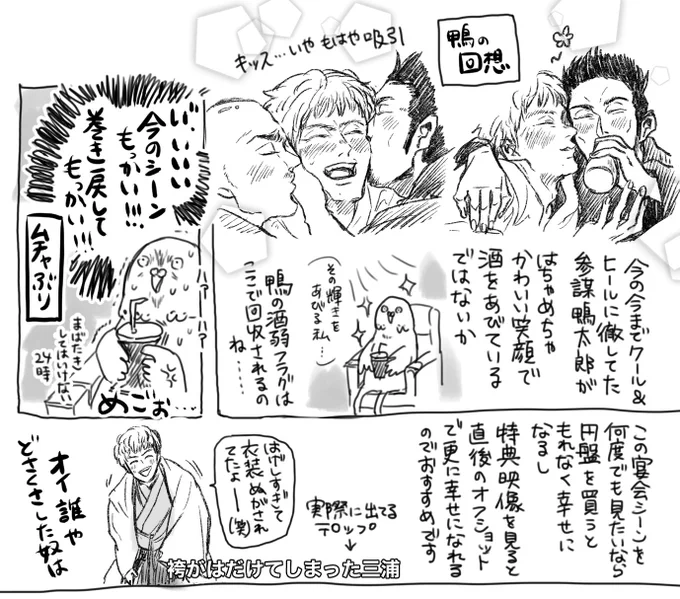 鴨の
回想
キッス…いや もはや 吸引
い、いいい
今のシーン
もっかい!!!
巻き戻して
もっかい!!!
ムチャぶり
ハァ?
ハァ?
まばたき
してはいけない
24時
めごぉ…
今の今までクール&
ヒールに徹してた
参謀鴨太郎が
はちゃめちゃ
かわいい笑顔で
酒をあびている
ではないか
その輝きを
あびる私…
鴨の酒弱フラグは
ここで回収されるの
ね……
この宴会シーンを
何度でも見たいなら
円盤を買うと
もれなく幸せに
なるし
特典映像を見ると
直後のオフショット
で更に幸せになれる
のでおすすめです
実際に出てる
テロップ
はげしすぎて
衣装ぬがされ
てたよーー(笑)
袴がはだけてしまった三浦
オイ誰や
どさくさした奴は